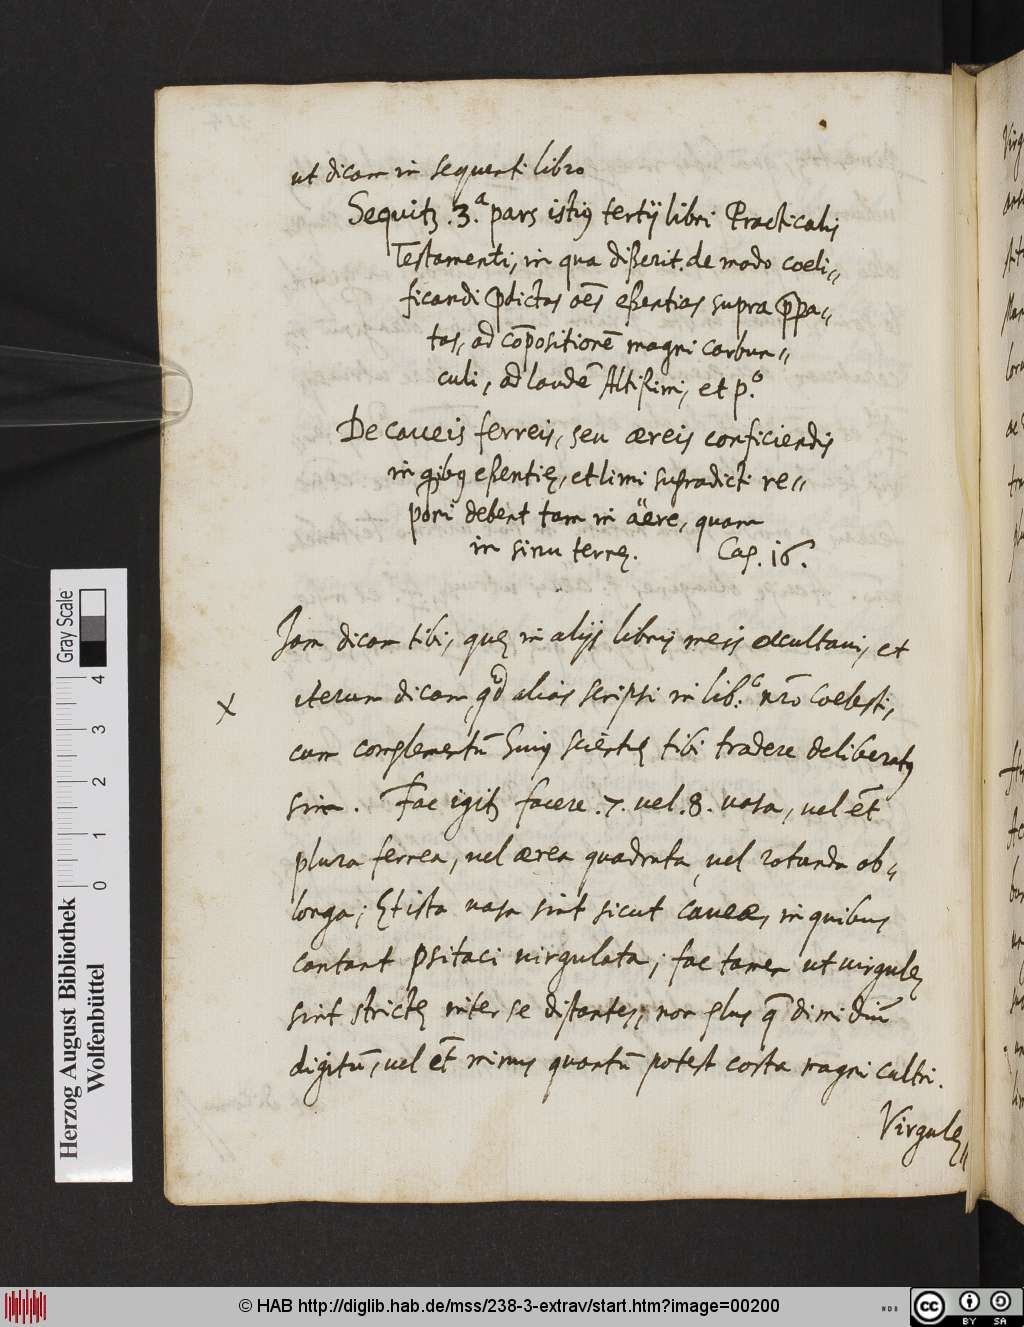 ut dicam in sequenti libro
Sequitʒ .3.ᵃ pars istiꝰ tertij libri Practicalis
Testamenti, in qua dißerit. de modo coeli„
ficandi p̄dictas oēs eßentias supra p̄pa„
tas, ad cōpositionē magni carbun„
culi, ad laudē Altißimi, et p.º
De caveis ferreis, seu æreis conficiendis
in qibꝰ eßentię, et limi supradicti re„
poni debent tam in äere, quam
in sinu terrę. Cap. 16.
Jam dicam tibi, quę in alijs libris meis occultavi, et
x iterum dicam, qd alias scripsi in lib.º nr̄o Coelesti,
cum complementū huiꝰ scientię tibi tradere deliberatꝰ
sim. Fac igitʒ facere .7. vel .8. vasa, vel et̄
plura ferrea, vel ærea quadrata, vel rotunda ob„
longa; Et ista vasa sint sicut caveæ, in quibus
cantant psitaci virgulata; fac tamen ut virgulę
sint strictę inter se distantes; non plus q̄ dimidiū
digitū, vel et̄ minus quantū potest costa magni cultri.
Virgulę„
Herzog August Bibliothek
Wolfenbüttel
0 1 2 3 4
Gray Scale
© HAB http://diglib.hab.de/mss/238-3-extrav/start.htm?image=00200
CC BY SA